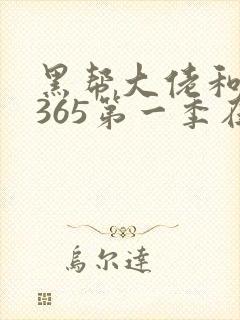 黑帮大佬和
365第一季在
乌尔达